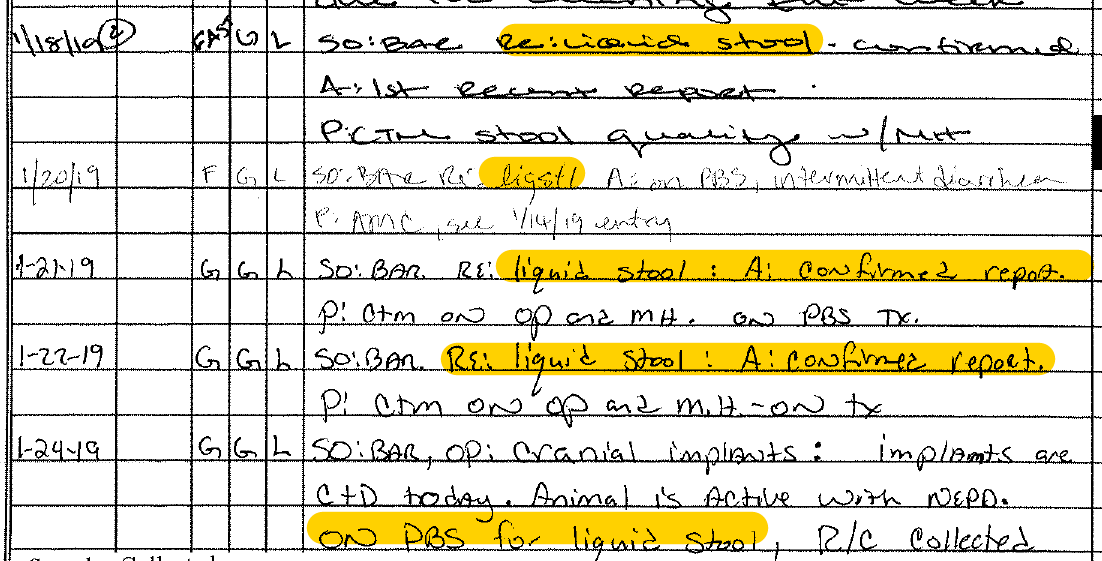 1/18/19 ② G L SO: BAR Re: liquid stool - confirmed
A: 1st recent report.
P: CTM stool quality w/ MH
1/20/19 F G L SO: BAR Re: liqstl A: on PBS, intermittent diarrhea
P: AMC, see 1/14/19 entry
1-21-19 G G L SO: BAR. RE: liquid stool : A: confirmed report.
P: Ctm on op and MH. on PBS Tx.
1-22-19 G G L SO: BAR. RE: liquid stool : A: confirmed report.
P: Ctm on op and M.H. - on tx
1-24-19 G G L SO: BAR, OP: Cranial implants : implants are
C+D today. Animal is Active with NEPD.
ON PBS for liquid stool, R/C collected